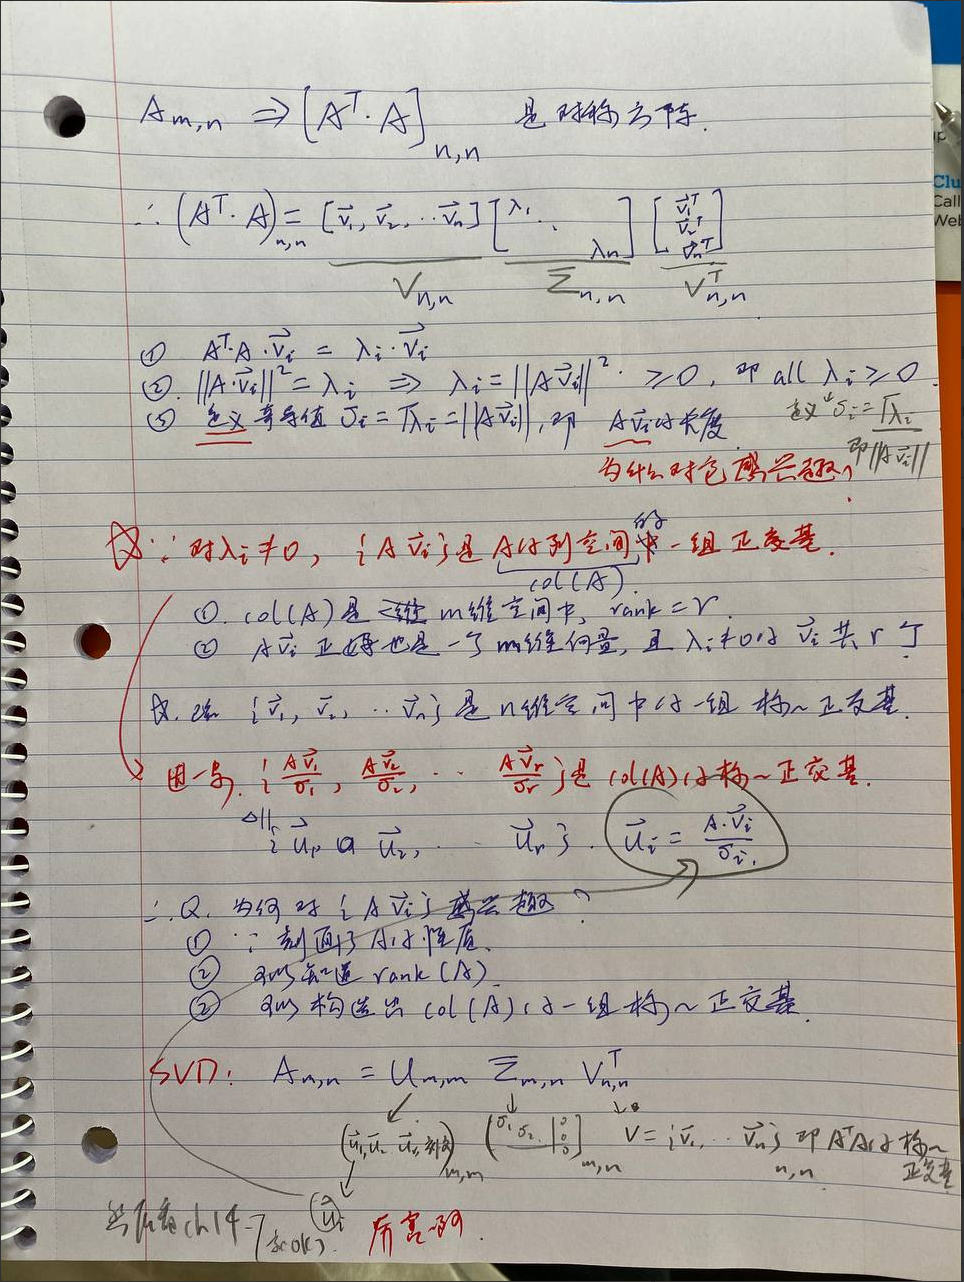 A m,n ⇒ [A^T · A] n,n 是对称方阵.
∴ (A^T · A) n,n = [v⃗₁, v⃗₂, ·· v⃗n] [λ₁ · · λn] [v⃗₁^T v⃗₂^T v⃗n^T]
V n,n Σ n,n V^T n,n
① A^T·A·v⃗i = λi·v⃗i
② ||A·v⃗i||² = λi ⇒ λi = ||Av⃗i||² ≥ 0, 即 all λi ≥ 0.
③ 定义奇异值 σi = √λi = ||Av⃗i||, 即 Av⃗i的长度
定义 σi = √λi
即||Av⃗i||
为什么对它感兴趣?
☆ ∵ 对λi ≠ 0, {Av⃗i}是A的列空间的一组正交基.
col(A).
①. col(A)是 m维空间中, rank = r.
② Av⃗i 也是一个m维向量, 且 λi≠0的 v⃗i 共 r 个
☆. {v⃗₁, v⃗₂, ·· v⃗n}是n维空间中的一组标~正交基.
进一步. {Av⃗₁/σ₁, Av⃗₂/σ₂, ·· Av⃗r/σr}是col(A)的标~正交基.
{u⃗₁, u⃗₂, ·· u⃗r}. u⃗i = A·v⃗i/σi.
∴ Q. 为何对{Av⃗i}感兴趣?
① ∵ 刻画了A的性质.
② 可以知道 rank(A).
② 可以构造出 col(A)的一组标~正交基.
SVD: A m,n = U m,m Σ m,n V^T n,n
(u⃗₁, u⃗₂ u⃗r, 补) m,m (σ₁ σ₂ | 0 0 0] m,n V = {v⃗₁ ·· v⃗n} n,n 即 A^TA的标~
正交基
(u⃗i)
ch14-7 厉害啊.